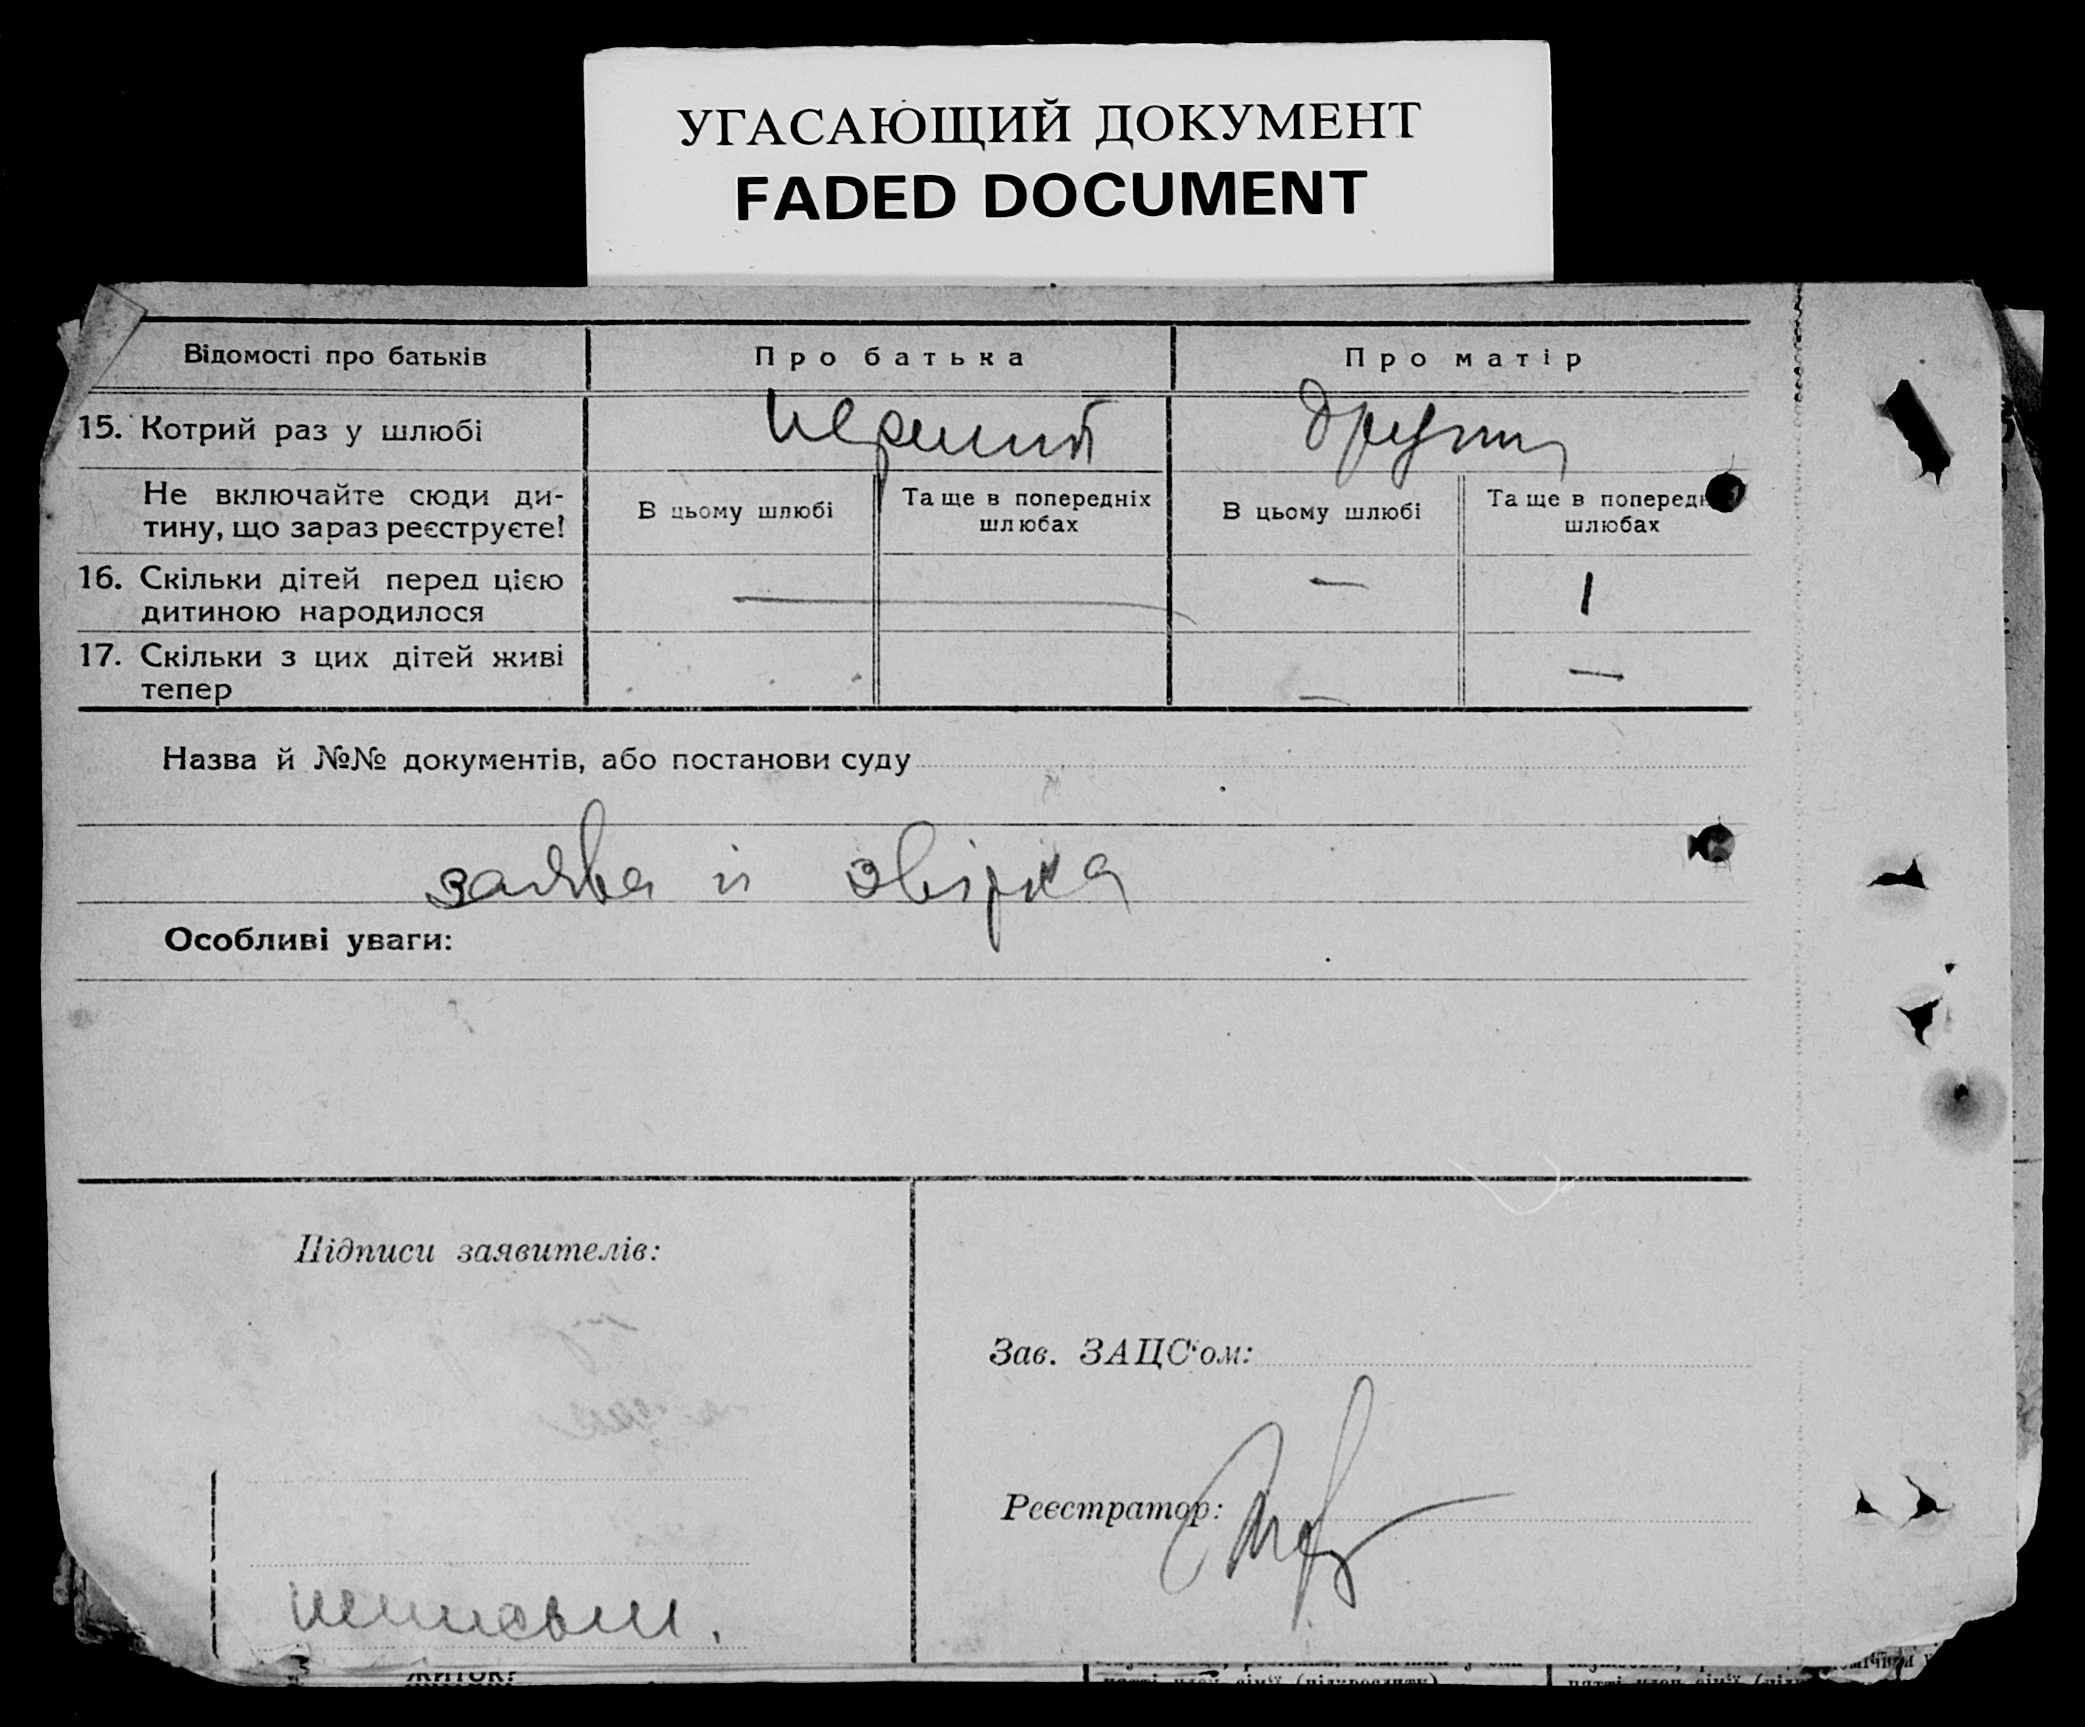 УГАСАЮЩИЙ ДОКУМЕНТ
FADED DOCUMENT
Відомості про батьків
Про батька
Про матір
15. Котрий раз у шлюбі
перший
другий
Не включайте сюди ди-
тину, що зараз реєструєте!
В цьому шлюбі
Та ще в попередніх
шлюбах
В цьому шлюбі
Та ще в поперед
шлюбах
16. Скільки дітей перед цією
дитиною народилося
—
—
1
17. Скільки з цих дітей живі
тепер
—
—
Назва й №№ документів, або постанови суду
заява й звірка
Особливі уваги:
Підписи заявителів:
Зав. ЗАЦС‘ом:
Реєстратор:
житок?